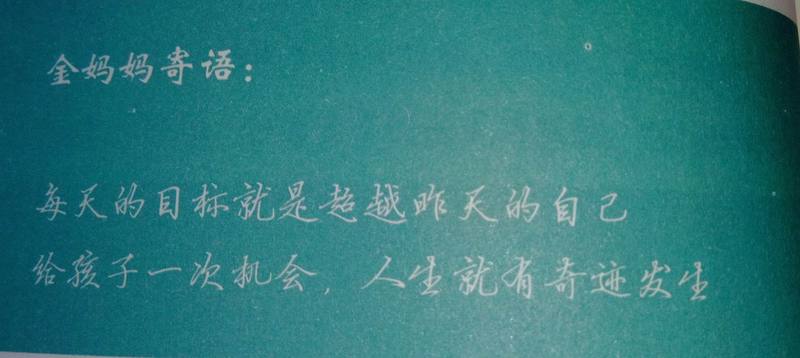 金妈妈寄语：
每天的目标就是超越昨天的自己
给孩子一次机会，人生就有奇迹发生